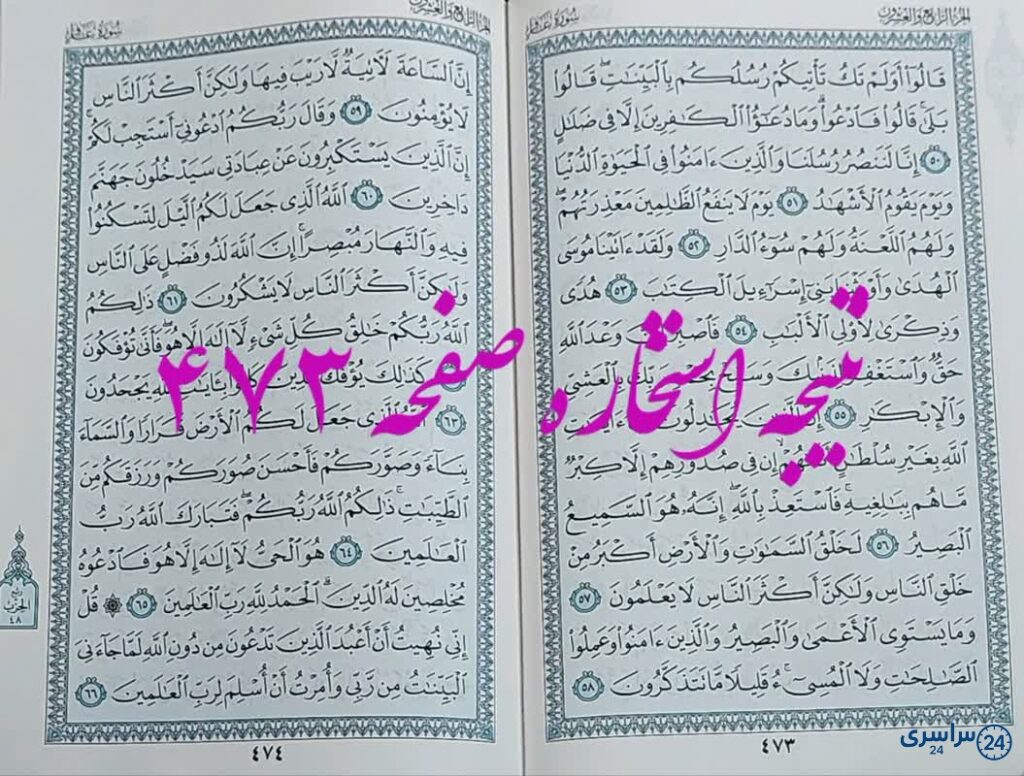 الجزء الرابع والعشرون
سورة غافر
قَالُوٓا۟ أَوَلَمْ تَكُ تَأْتِيكُمْ رُسُلُكُم بِٱلْبَيِّنَٰتِ ۖ قَالُوا۟
بَلَىٰ ۚ قَالُوا۟ فَٱدْعُوا۟ ۗ وَمَا دُعَٰٓؤُا۟ ٱلْكَٰفِرِينَ إِلَّا فِى ضَلَٰلٍ
٥٠ إِنَّا لَنَنصُرُ رُسُلَنَا وَٱلَّذِينَ ءَامَنُوا۟ فِى ٱلْحَيَوٰةِ ٱلدُّنْيَا
وَيَوْمَ يَقُومُ ٱلْأَشْهَٰدُ ٥١ يَوْمَ لَا يَنفَعُ ٱلظَّٰلِمِينَ مَعْذِرَتُهُمْ ۖ
وَلَهُمُ ٱللَّعْنَةُ وَلَهُمْ سُوٓءُ ٱلدَّارِ ٥٢ وَلَقَدْ ءَاتَيْنَا مُوسَى
ٱلْهُدَىٰ وَأَوْرَثْنَا بَنِىٓ إِسْرَٰٓءِيلَ ٱلْكِتَٰبَ ٥٣ هُدًى
وَذِكْرَىٰ لِأُو۟لِى ٱلْأَلْبَٰبِ ٥٤ فَٱصْبِرْ إِنَّ وَعْدَ ٱللَّهِ
حَقٌّ وَٱسْتَغْفِرْ لِذَنۢبِكَ وَسَبِّحْ بِحَمْدِ رَبِّكَ بِٱلْعَشِىِّ
وَٱلْإِبْكَٰرِ ٥٥ إِنَّ ٱلَّذِينَ يُجَٰدِلُونَ فِىٓ ءَايَٰتِ
ٱللَّهِ بِغَيْرِ سُلْطَٰنٍ أَتَىٰهُمْ ۙ إِن فِى صُدُورِهِمْ إِلَّا كِبْرٌ
مَّا هُم بِبَٰلِغِيهِ ۚ فَٱسْتَعِذْ بِٱللَّهِ ۖ إِنَّهُۥ هُوَ ٱلسَّمِيعُ
ٱلْبَصِيرُ ٥٦ لَخَلْقُ ٱلسَّمَٰوَٰتِ وَٱلْأَرْضِ أَكْبَرُ مِنْ
خَلْقِ ٱلنَّاسِ وَلَٰكِنَّ أَكْثَرَ ٱلنَّاسِ لَا يَعْلَمُونَ ٥٧
وَمَا يَسْتَوِى ٱلْأَعْمَىٰ وَٱلْبَصِيرُ وَٱلَّذِينَ ءَامَنُوا۟ وَعَمِلُوا۟
ٱلصَّٰلِحَٰتِ وَلَا ٱلْمُسِىٓءُ ۚ قَلِيلًا مَّا تَتَذَكَّرُونَ ٥٨
٤٧٣
الجزء الرابع والعشرون
سورة غافر
إِنَّ ٱلسَّاعَةَ لَءَاتِيَةٌ لَّا رَيْبَ فِيهَا وَلَٰكِنَّ أَكْثَرَ ٱلنَّاسِ
لَا يُؤْمِنُونَ ٥٩ وَقَالَ رَبُّكُمُ ٱدْعُونِىٓ أَسْتَجِبْ لَكُمْ ۚ
إِنَّ ٱلَّذِينَ يَسْتَكْبِرُونَ عَنْ عِبَادَتِى سَيَدْخُلُونَ جَهَنَّمَ
دَاخِرِينَ ٦٠ ٱللَّهُ ٱلَّذِى جَعَلَ لَكُمُ ٱلَّيْلَ لِتَسْكُنُوا۟
فِيهِ وَٱلنَّهَارَ مُبْصِرًا ۚ إِنَّ ٱللَّهَ لَذُو فَضْلٍ عَلَى ٱلنَّاسِ
وَلَٰكِنَّ أَكْثَرَ ٱلنَّاسِ لَا يَشْكُرُونَ ٦١ ذَٰلِكُمُ
ٱللَّهُ رَبُّكُمْ خَٰلِقُ كُلِّ شَىْءٍ لَّآ إِلَٰهَ إِلَّا هُوَ ۖ فَأَنَّىٰ تُؤْفَكُونَ
كَذَٰلِكَ يُؤْفَكُ ٱلَّذِينَ كَانُوا۟ بِـَٔايَٰتِ ٱللَّهِ يَجْحَدُونَ
٦٣ ٱللَّهُ ٱلَّذِى جَعَلَ لَكُمُ ٱلْأَرْضَ قَرَارًا وَٱلسَّمَآءَ
بِنَآءً وَصَوَّرَكُمْ فَأَحْسَنَ صُوَرَكُمْ وَرَزَقَكُم مِّنَ
ٱلطَّيِّبَٰتِ ۚ ذَٰلِكُمُ ٱللَّهُ رَبُّكُمْ ۖ فَتَبَارَكَ ٱللَّهُ رَبُّ
ٱلْعَٰلَمِينَ ٦٤ هُوَ ٱلْحَىُّ لَآ إِلَٰهَ إِلَّا هُوَ فَٱدْعُوهُ
مُخْلِصِينَ لَهُ ٱلدِّينَ ۗ ٱلْحَمْدُ لِلَّهِ رَبِّ ٱلْعَٰلَمِينَ ٦٥ ۞ قُلْ
إِنِّى نُهِيتُ أَنْ أَعْبُدَ ٱلَّذِينَ تَدْعُونَ مِن دُونِ ٱللَّهِ لَمَّا جَآءَنِىَ
ٱلْبَيِّنَٰتُ مِن رَّبِّى وَأُمِرْتُ أَنْ أُسْلِمَ لِرَبِّ ٱلْعَٰلَمِينَ ٦٦
٤٧٤
ربع
الحزب
٤٨
نتیجه استخاره صفحه ۴۷۳
سراسری 24
24